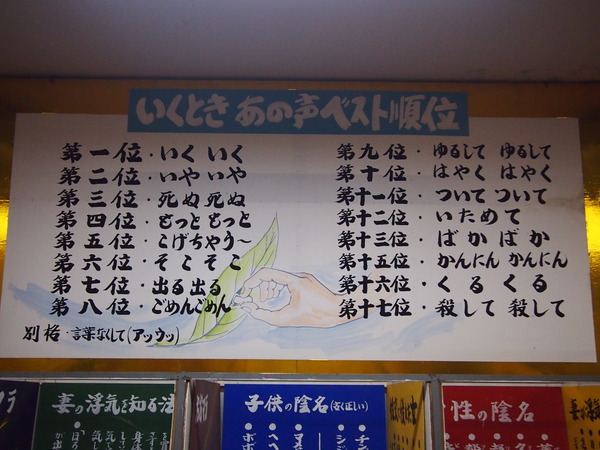 いくとき あの声ベスト順位
第一位・いく いく
第二位・いや いや
第三位・死ぬ 死ぬ
第四位・もっと もっと
第五位・こげちゃう〜
第六位・そこ そこ
第七位・出る 出る
第八位・ごめんごめん
別格・言葉なくして(アッウッ)
第九位・ゆるして ゆるして
第十位・はやく はやく
第十一位・ついて ついて
第十二位・いためて
第十三位・ばか ばか
第十五位・かんにん かんにん
第十六位・くる くる
第十七位・殺して 殺して
妻の浮気を知る法
子供の陰名(古く正しい)
性の陰名